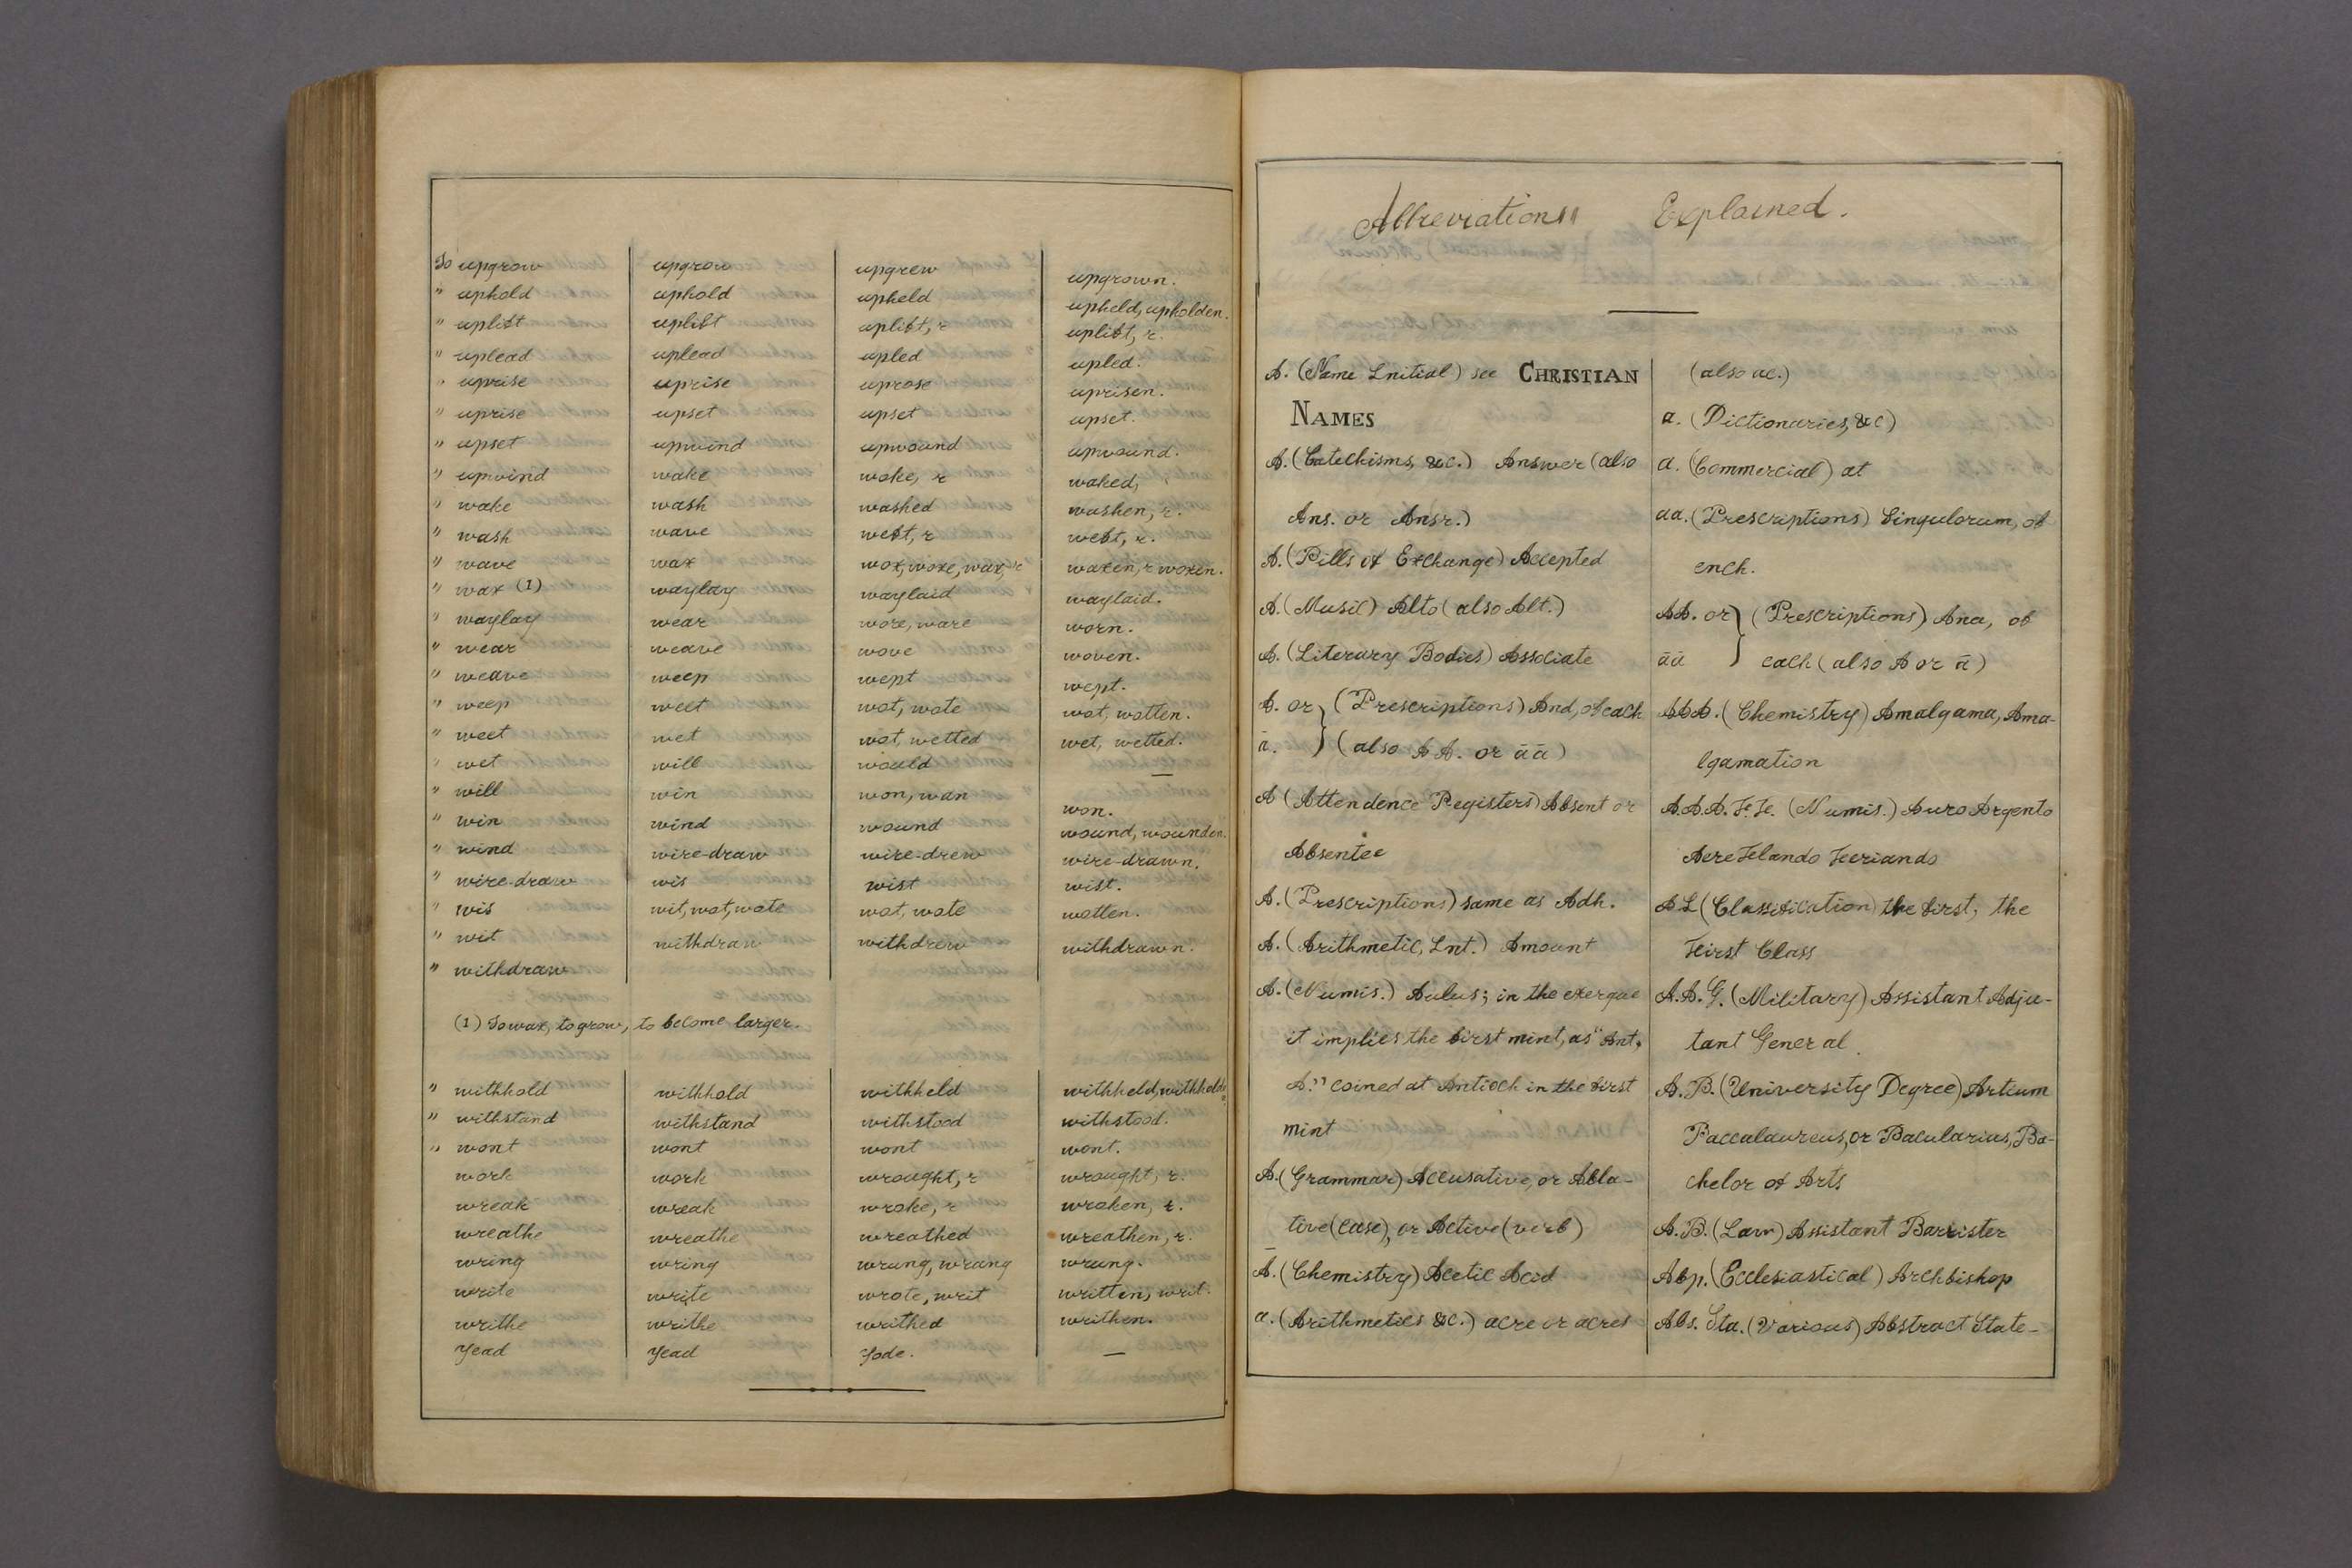 To upgrow upgrow upgrew upgrown.
" uphold uphold upheld upheld, upholden.
" uplift uplift uplift, r uplift, r.
" uplead uplead upled upled.
" uprise uprise uprose uprisen.
" uprise upset upset upset.
" upset upwind upwound upwound.
" upwind wake woke, r waked,
" wake wash washed washen, r.
" wash wave weft, r weft, r.
" wave wax wox, woxe, wax, r waxen, r woxen.
" wax (1) waylay waylaid waylaid.
" waylay wear wore, ware worn.
" wear weave wove woven.
" weave weep wept wept.
" weep weet wot, wote wot, wotten.
" weet wet wot, wetted wet, wetted.
" wet will would —
" will win won, wan won.
" win wind wound wound, wounden.
" wind wire-draw wire-drew wire-drawn.
" wire-draw wis wist wist.
" wis wit, wot, wote wot, wote wotten.
" wit withdraw withdrew withdrawn.
" withdraw
(1) To wax, to grow, to become larger.
" withhold withhold withheld withheld, withholden
" withstand withstand withstood withstood.
" wont wont wont wont.
work work wrought, r wrought, r.
wreak wreak wroke, r wroken, r.
wreathe wreathe wreathed wreathen, r.
wring wring wrung, wrang wrung.
write write wrote, writ written, writ.
writhe writhe writhed writhen.
Yead Yead Yode. —
Abbreviations Explained.
A. (Name Initial) see CHRISTIAN
NAMES
A. (Catechisms, &c.) Answer (also
Ans. or Ansr.)
A. (Bills of Exchange) Accepted
A. (Music) Alto (also Alt.)
A. (Literary Bodies) Associate
A. or } (Prescriptions) And, of each
ā. } (also A A. or āā)
A (Attendence Registers) Absent or
Absentee
A. (Prescriptions) same as Adh.
A. (Arithmetic, Int.) Amount
A. (Numis.) Aulus; in the exergue
it implies the first mint, as "Ant.
A." coined at Antioch in the first
mint
A. (Grammar) Accusative, or Abla-
tive (case), or Active (verb)
Ā. (Chemistry) Acetic Acid
a. (Arithmetics &c.) acre or acres
(also ac.)
a. (Dictionaries, &c)
a. (Commercial) at
aa. (Prescriptions) Singulorum, of
ench.
AA. or } (Prescriptions) Ana, of
āā } each (also A or ā)
AAA. (Chemistry) Amalgama, Ama-
lgamation
A.A.A. F. Fe. (Numis.) Auro Argento
Aere Flando Feriando
A I (Classification) the first, the
First Class
A.A.G. (Military) Assistant Adju-
tant General
A.B. (University Degree) Artium
Baccalaureus, or Bacularius, Ba-
chelor of Arts
A.B. (Law) Assistant Barrister
Abp. (Ecclesiastical) Archbishop
Abs. Sta. (Various) Abstract State-